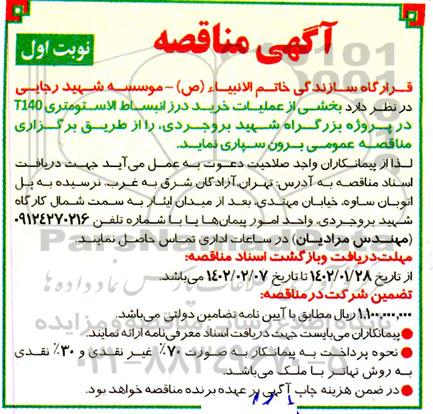 آگهی مناقصه
نوبت اول
قرارگاه سازندگی خاتم الانبیاء (ص) - موسسه شهید رجایی
در نظر دارد بخشی از عملیات خرید درز انبساط الاستومتری T140
در پروژه بزرگراه شهید بروجردی، را از طریق برگزاری
مناقصه عمومی برون سپاری نماید.
لذا از پیمانکاران واجد صلاحیت دعوت به عمل می‌آید جهت دریافت
اسناد مناقصه به آدرس: تهران، آزادگان شرق به غرب، نرسیده به پل
اتوبان ساوه، خیابان مهتدی، بعد از میدان ایثار به سمت شمال کارگاه
شهید بروجردی، واحد امور پیمان‌ها یا با شماره تلفن ۰۹۱۲۴۲۷۰۲۱۶
(مهندس مرادیان) در ساعات اداری تماس حاصل نمایند.
مهلت دریافت و بازگشت اسناد مناقصه:
از تاریخ ۱۴۰۲/۰۱/۲۸ تا تاریخ ۱۴۰۲/۰۲/۰۷ می‌باشد.
تضمین شرکت در مناقصه:
۱.۱۰۰.۰۰۰.۰۰۰ ریال مطابق با آیین نامه تضامین دولتی می‌باشد.
پیمانکاران می‌بایست جهت دریافت اسناد معرفی‌نامه ارائه نمایند.
نحوه پرداخت به پیمانکار به صورت ۷۰٪ غیر نقدی و ۳۰٪ نقدی
به روش تهاتر با ملک می‌باشد.
در ضمن هزینه چاپ آگهی بر عهده برنده مناقصه خواهد بود.